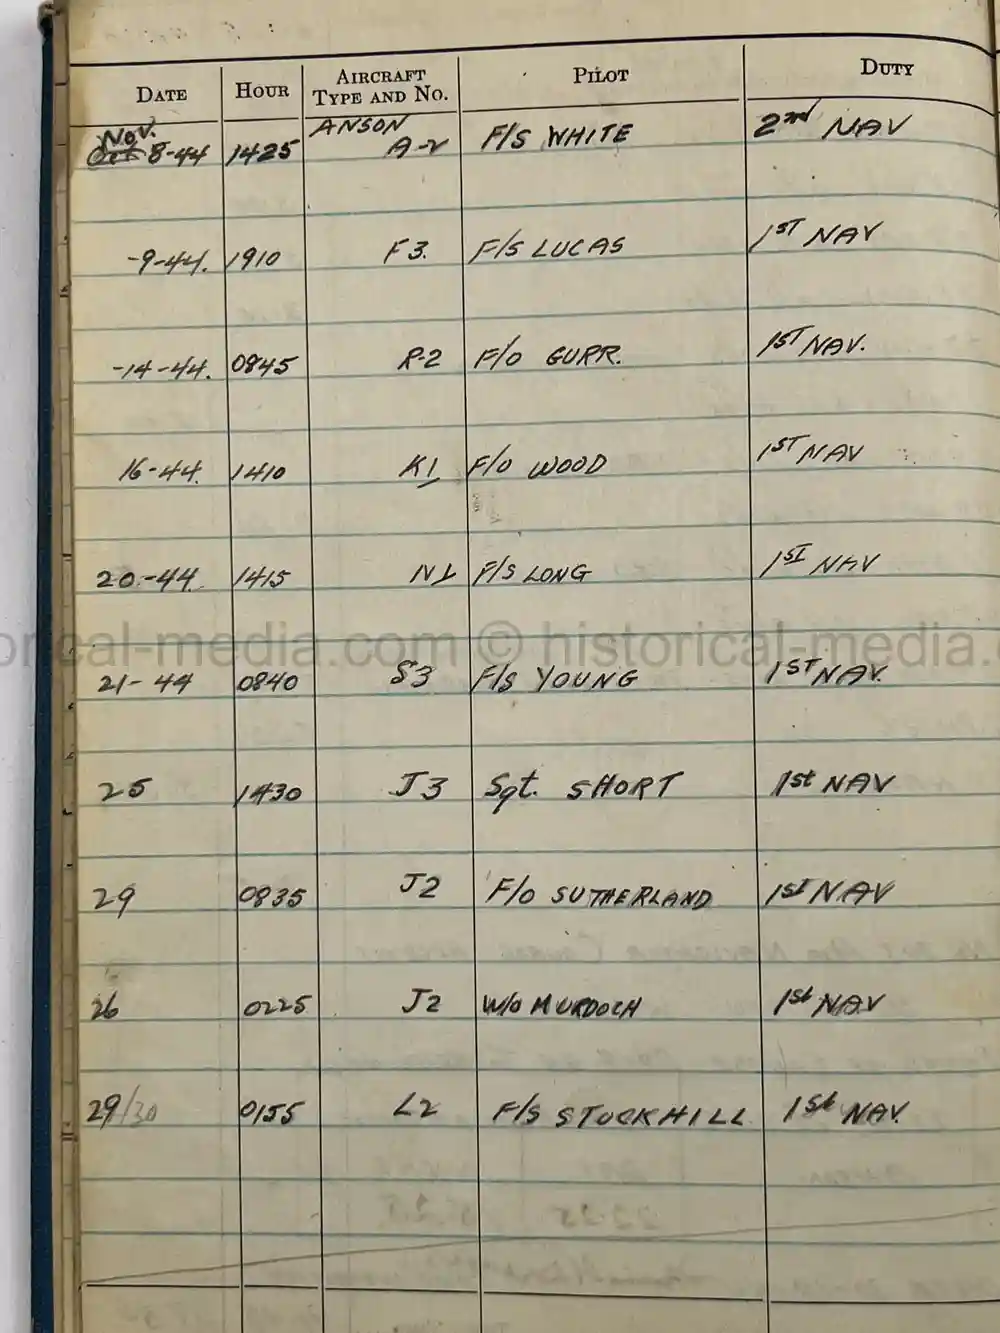 DATE HOUR AIRCRAFT TYPE AND NO. PILOT DUTY
Nov. ANSON
Oct 8-44 1425 A-2 F/S WHITE 2nd NAV
-9-44. 1910 F3. F/S LUCAS 1ST NAV
-14-44. 0845 R-2 F/O GURR. 1ST NAV.
16-44. 1410 K1 F/O WOOD 1ST NAV
20-44. 1415 N1 F/S LONG 1ST NAV
historical-media.com © historical-media.
21-44 0840 S3 F/S YOUNG 1ST NAV.
25 1430 J3 Sgt. SHORT 1st NAV
29 0835 J2 F/O SUTHERLAND 1st NAV
26 0225 J2 W/O MURDOCH 1st NAV
29/30 0155 L2 F/S STOCKHILL 1st NAV.